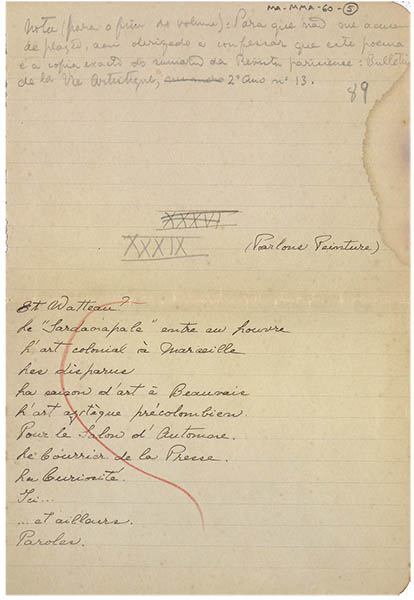 MA-MMA-60-(5)
Nota (para o fim do volume): Para que não me acusem
de plagio, sou obrigado a confessar que este poema
é a copia exacta do sumario da Revista parisiense: Bulletin
de la Vie Artistique, 2º Ano nº 13.
89
XXXVI
XXXIX
(Parlons Peinture)
Et Watteau?
Le "Sardanapale" entre au Louvre
L'art colonial à Marseille
Les disparus
La saison d'art à Beauvais
L'art aztèque précolombien.
Pour le Salon d'Automne.
Le Courrier de la Presse.
La Curiosité.
Ici...
... et ailleurs.
Paroles.